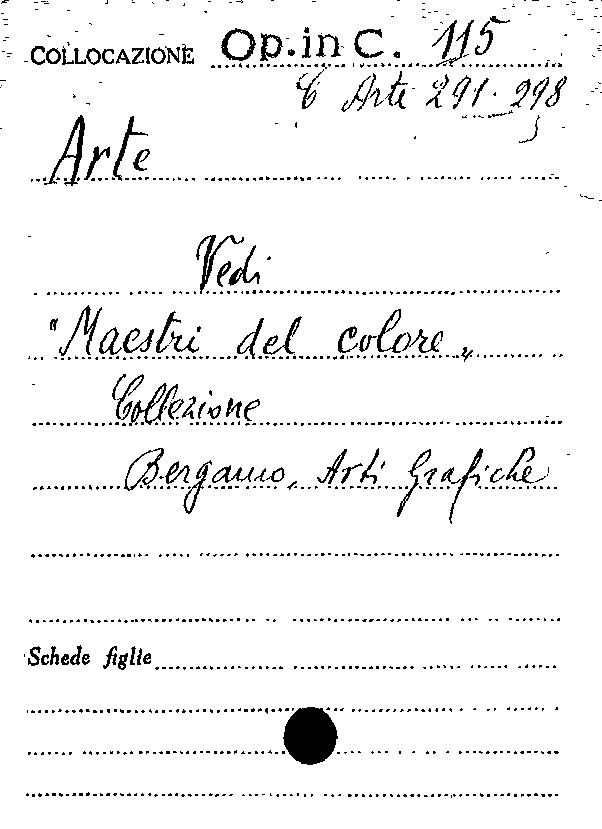 COLLOCAZIONE Op. in C. 115
C Arte 291-298
Arte
Vedi
"Maestri del colore"
Collezione
Bergamo, Arti Grafiche
Schede figlie